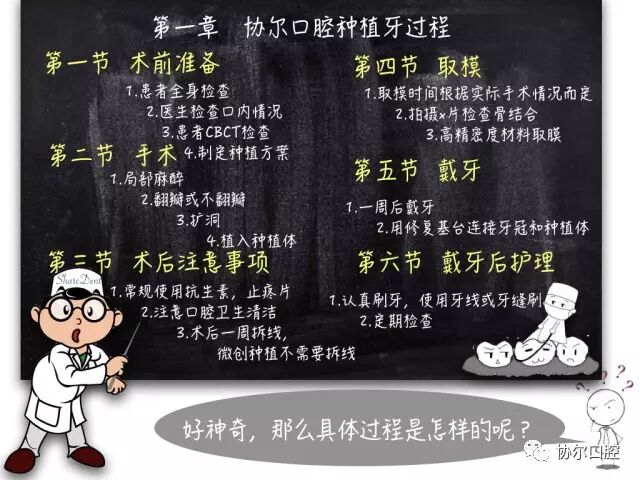 第一章 协尔口腔种植牙过程
第一节 术前准备
1.患者全身检查
2.医生检查口内情况
3.患者CBCT检查
4.制定种植方案
第二节 手术
1.局部麻醉
2.翻瓣或不翻瓣
3.扩洞
4.植入种植体
第三节 术后注意事项
1.常规使用抗生素，止疼片
2.注意口腔卫生清洁
3.术后一周拆线，
微创种植不需要拆线
第四节 取模
1.取模时间根据实际手术情况而定
2.拍摄x片检查骨结合
3.高精密度材料取膜
第五节 戴牙
1.一周后戴牙
2.用修复基台连接牙冠和种植体
第六节 戴牙后护理
1.认真刷牙，使用牙线或牙缝刷
2.定期检查
ShareDent
好神奇，那么具体过程是怎样的呢？
? ? ? ?
协尔口腔